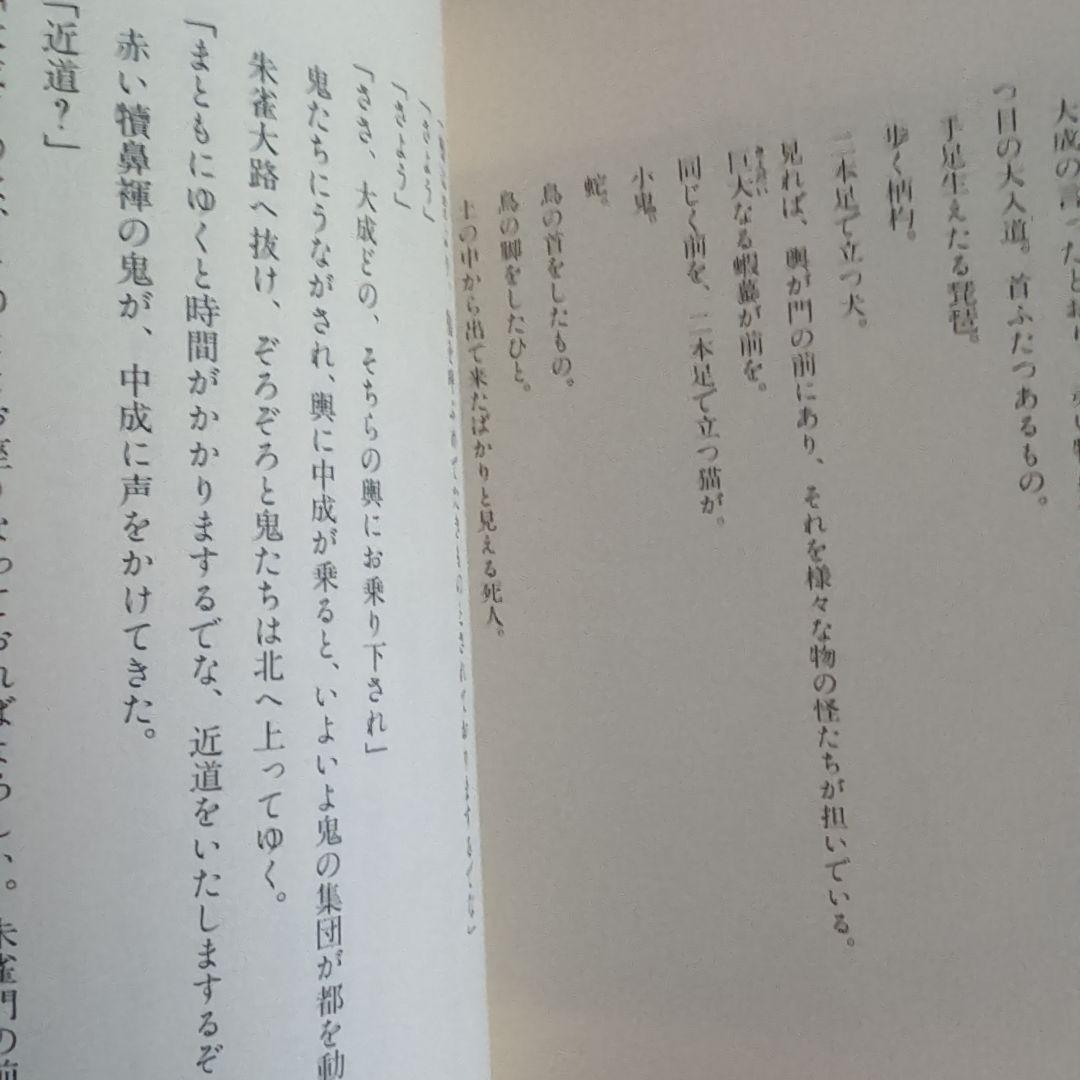 大成の言ったとおり、赤い
つ目の大入道。首ふたつあるもの。
手足生えたる琵琶。
歩く柄杓。
二本足で立つ犬。
見れば、輿が門の前にあり、それを様々な物の怪たちが担いでいる。
巨大なる蝦蟇が前を。
同じく前を、二本足で立つ猫が。
小鬼。
蛇。
鳥の首をしたもの。
鳥の脚をしたひと。
土の中から出て来たばかりと見える死人。
「さよう」
「さよう」
「ささ、大成どの、そちらの輿にお乗り下され」
鬼たちにうながされ、輿に中成が乗ると、いよいよ鬼の集団が都を動
朱雀大路へ抜け、ぞろぞろと鬼たちは北へ上ってゆく。
「まともにゆくと時間がかかりまするでな、近道をいたしまするぞ
赤い犢鼻褌の鬼が、中成に声をかけてきた。
「近道？」
おればよろしい。朱雀門の前